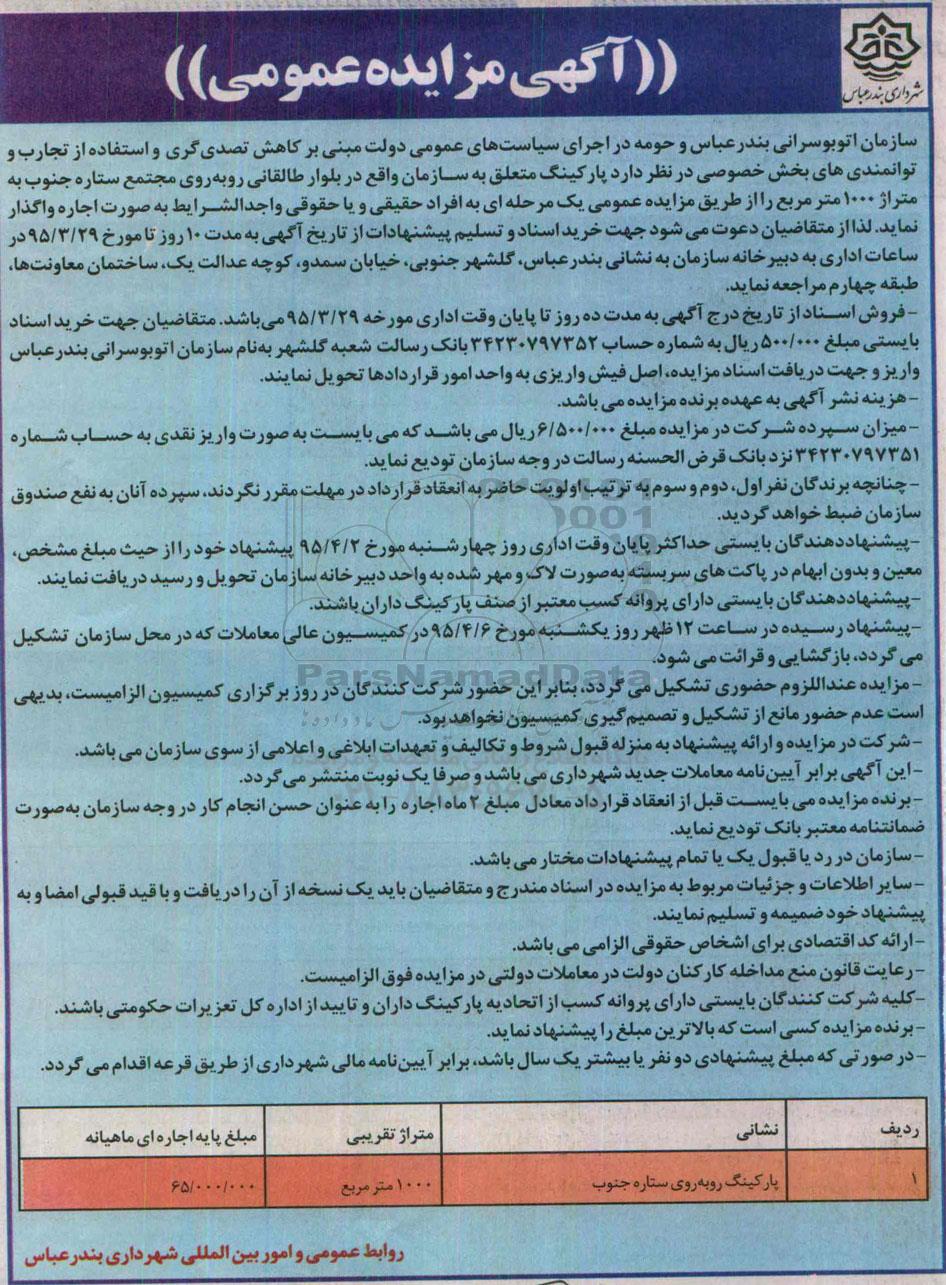 شهرداری بندرعباس
((آگهی مزایده عمومی))
سازمان اتوبوسرانی بندرعباس و حومه در اجرای سیاست‌های عمومی دولت مبنی بر کاهش تصدی‌گری و استفاده از تجارب و
توانمندی های بخش خصوصی در نظر دارد پارکینگ متعلق به سازمان واقع در بلوار طالقانی روبه‌روی مجتمع ستاره جنوب به
متراژ ۱۰۰۰ متر مربع را از طریق مزایده عمومی یک مرحله ای به افراد حقیقی و یا حقوقی واجدالشرایط به صورت اجاره واگذار
نماید. لذا از متقاضیان دعوت می شود جهت خرید اسناد و تسلیم پیشنهادات از تاریخ آگهی به مدت ۱۰ روز تا مورخ ۹۵/۳/۲۹ در
ساعات اداری به دبیرخانه سازمان به نشانی بندرعباس، گلشهر جنوبی، خیابان سمدو، کوچه عدالت یک، ساختمان معاونت‌ها،
طبقه چهارم مراجعه نماید.
-فروش اسناد از تاریخ درج آگهی به مدت ده روز تا پایان وقت اداری مورخه ۹۵/۳/۲۹ می‌باشد. متقاضیان جهت خرید اسناد
بایستی مبلغ ۵۰۰/۰۰۰ ریال به شماره حساب ۳۴۲۳۰۷۹۷۳۵۲ بانک رسالت شعبه گلشهر به‌نام سازمان اتوبوسرانی بندرعباس
واریز و جهت دریافت اسناد مزایده، اصل فیش واریزی به واحد امور قراردادها تحویل نمایند.
-هزینه نشر آگهی به عهده برنده مزایده می باشد.
-میزان سپرده شرکت در مزایده مبلغ ۶/۵۰۰/۰۰۰ ریال می باشد که می بایست به صورت واریز نقدی به حساب شماره
۳۴۲۳۰۷۹۷۳۵۱ نزد بانک قرض الحسنه رسالت در وجه سازمان تودیع نماید.
-چنانچه برندگان نفر اول، دوم و سوم به ترتیب اولویت حاضر به انعقاد قرارداد در مهلت مقرر نگردند، سپرده آنان به نفع صندوق
سازمان ضبط خواهد گردید.
-پیشنهاددهندگان بایستی حداکثر پایان وقت اداری روز چهارشنبه مورخ ۹۵/۴/۲ پیشنهاد خود را از حیث مبلغ مشخص،
معین و بدون ابهام در پاکت های سربسته به‌صورت لاک و مهر شده به واحد دبیرخانه سازمان تحویل و رسید دریافت نمایند.
-پیشنهاددهندگان بایستی دارای پروانه کسب معتبر از صنف پارکینگ داران باشند.
-پیشنهاد رسیده در ساعت ۱۲ ظهر روز یکشنبه مورخ ۹۵/۴/۶ در کمیسیون عالی معاملات که در محل سازمان تشکیل
می گردد، بازگشایی و قرائت می شود.
ParsNamadData
-مزایده عنداللزوم حضوری تشکیل می گردد، بنابر این حضور شرکت کنندگان در روز برگزاری کمیسیون الزامیست، بدیهی
است عدم حضور مانع از تشکیل و تصمیم‌گیری کمیسیون نخواهد بود.
-شرکت در مزایده و ارائه پیشنهاد به منزله قبول شروط و تکالیف و تعهدات ابلاغی و اعلامی از سوی سازمان می باشد.
-این آگهی برابر آیین‌نامه معاملات جدید شهرداری می باشد و صرفا یک نوبت منتشر می گردد.
-برنده مزایده می بایست قبل از انعقاد قرارداد معادل مبلغ ۲ ماه اجاره را به عنوان حسن انجام کار در وجه سازمان به‌صورت
ضمانتنامه معتبر بانک تودیع نماید.
-سازمان در رد یا قبول یک یا تمام پیشنهادات مختار می باشد.
-سایر اطلاعات و جزئیات مربوط به مزایده در اسناد مندرج و متقاضیان باید یک نسخه از آن را دریافت و با قید قبولی امضا و به
پیشنهاد خود ضمیمه و تسلیم نمایند.
-ارائه کد اقتصادی برای اشخاص حقوقی الزامی می باشد.
-رعایت قانون منع مداخله کارکنان دولت در معاملات دولتی در مزایده فوق الزامیست.
-کلیه شرکت کنندگان بایستی دارای پروانه کسب از اتحادیه پارکینگ داران و تایید از اداره کل تعزیرات حکومتی باشند.
-برنده مزایده کسی است که بالاترین مبلغ را پیشنهاد نماید.
-در صورتی که مبلغ پیشنهادی دو نفر یا بیشتر یک سال باشد، برابر آیین‌نامه مالی شهرداری از طریق قرعه اقدام می گردد.
ردیف نشانی متراژ تقریبی مبلغ پایه اجاره ای ماهیانه
۱ پارکینگ روبه‌روی ستاره جنوب ۱۰۰۰ متر مربع ۶۵/۰۰۰/۰۰۰
روابط عمومی و امور بین المللی شهرداری بندرعباس